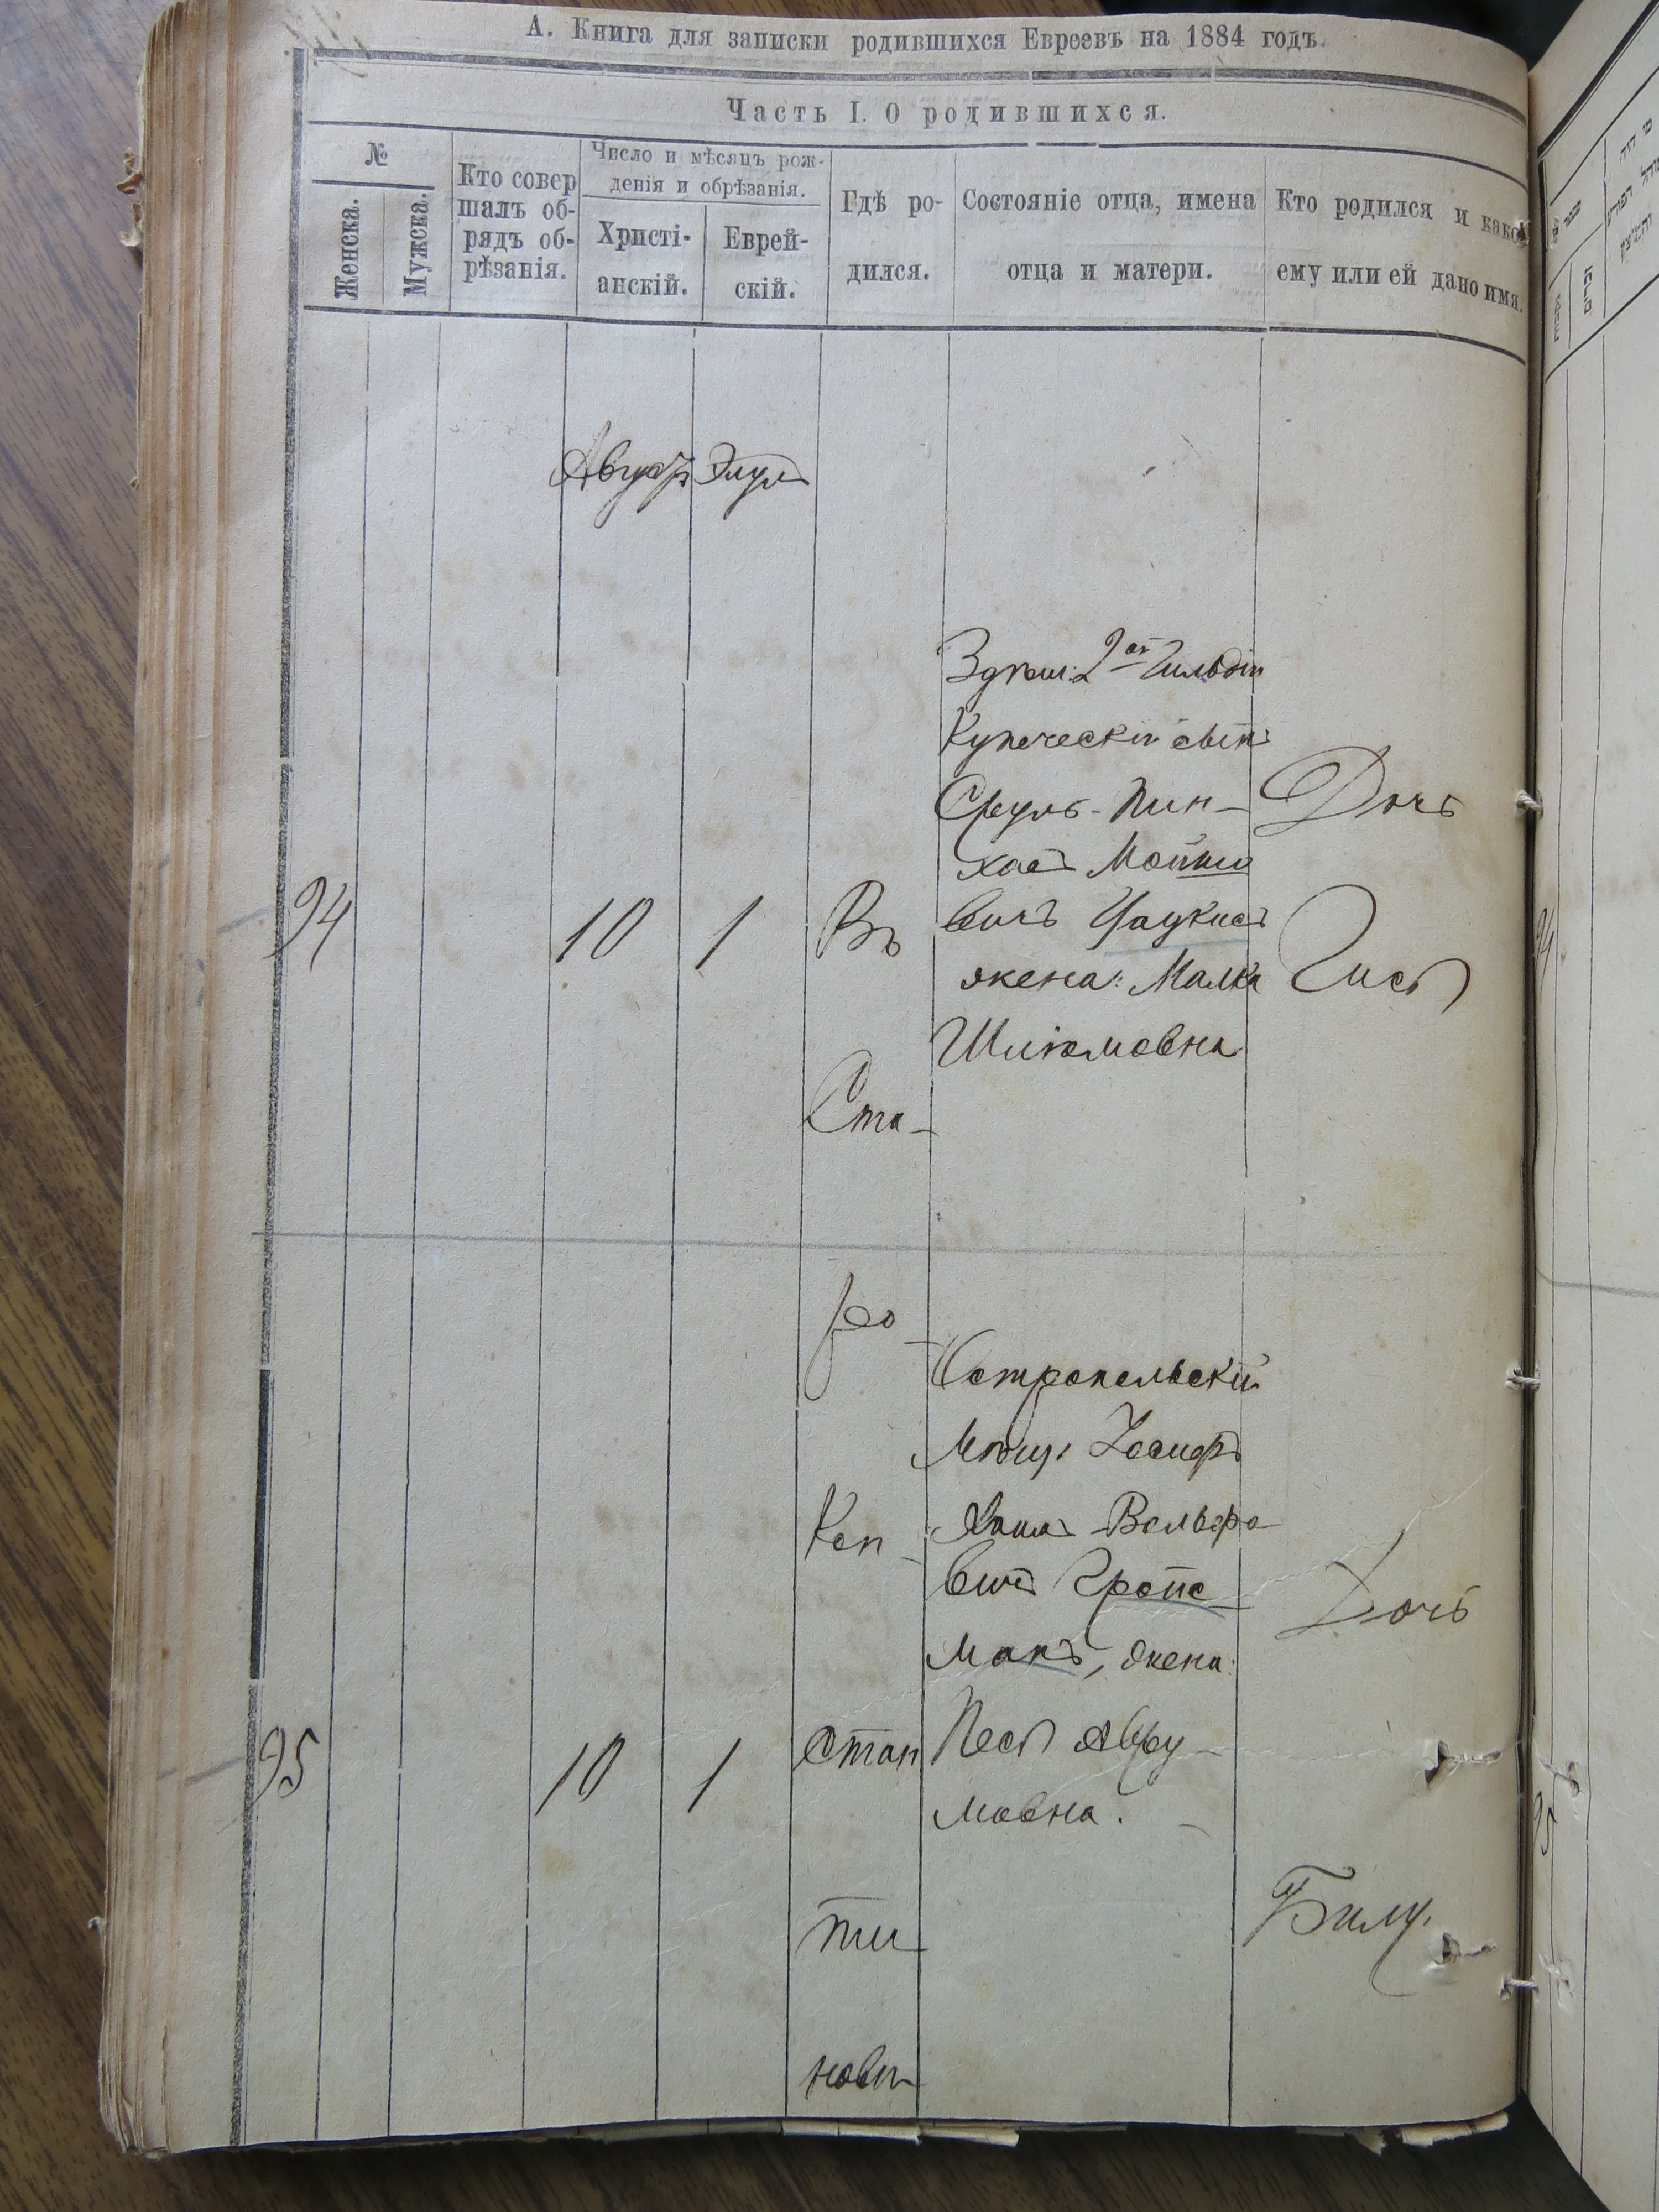 А. Книга для записки родившихся Евреевъ на 1884 годъ.
Часть I. О родившихся.
№
Женска.
Мужска.
Кто совер
шалъ об-
рядъ об-
рѣзанія.
Число и мѣсяцъ рож-
денія и обрѣзанія.
Христі-
анскій.
Еврей-
скій.
Гдѣ ро-
дился.
Состояніе отца, имена
отца и матери.
Кто родился и какое
ему или ей дано имя.
Августъ Элулъ
94
10
1
Въ
Ста-
ро
Кон
стан
ти
нови
Здѣш: 2ой Гильдіи
Купеческій сынъ
Сруль-Пин-
хасъ Мошко
вичъ Цацкисъ
жена: Малка
Шліомовна
Дочь
Гися
95
10
1
Остропольскій
Мѣщ: Іосифъ
Хаимъ Вольфо
вичъ Гройс
манъ, жена:
Песя Авру-
мовна.
Дочь